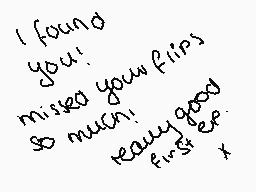 I found
you!
missed your flips
so much!
really good
first ep.
x